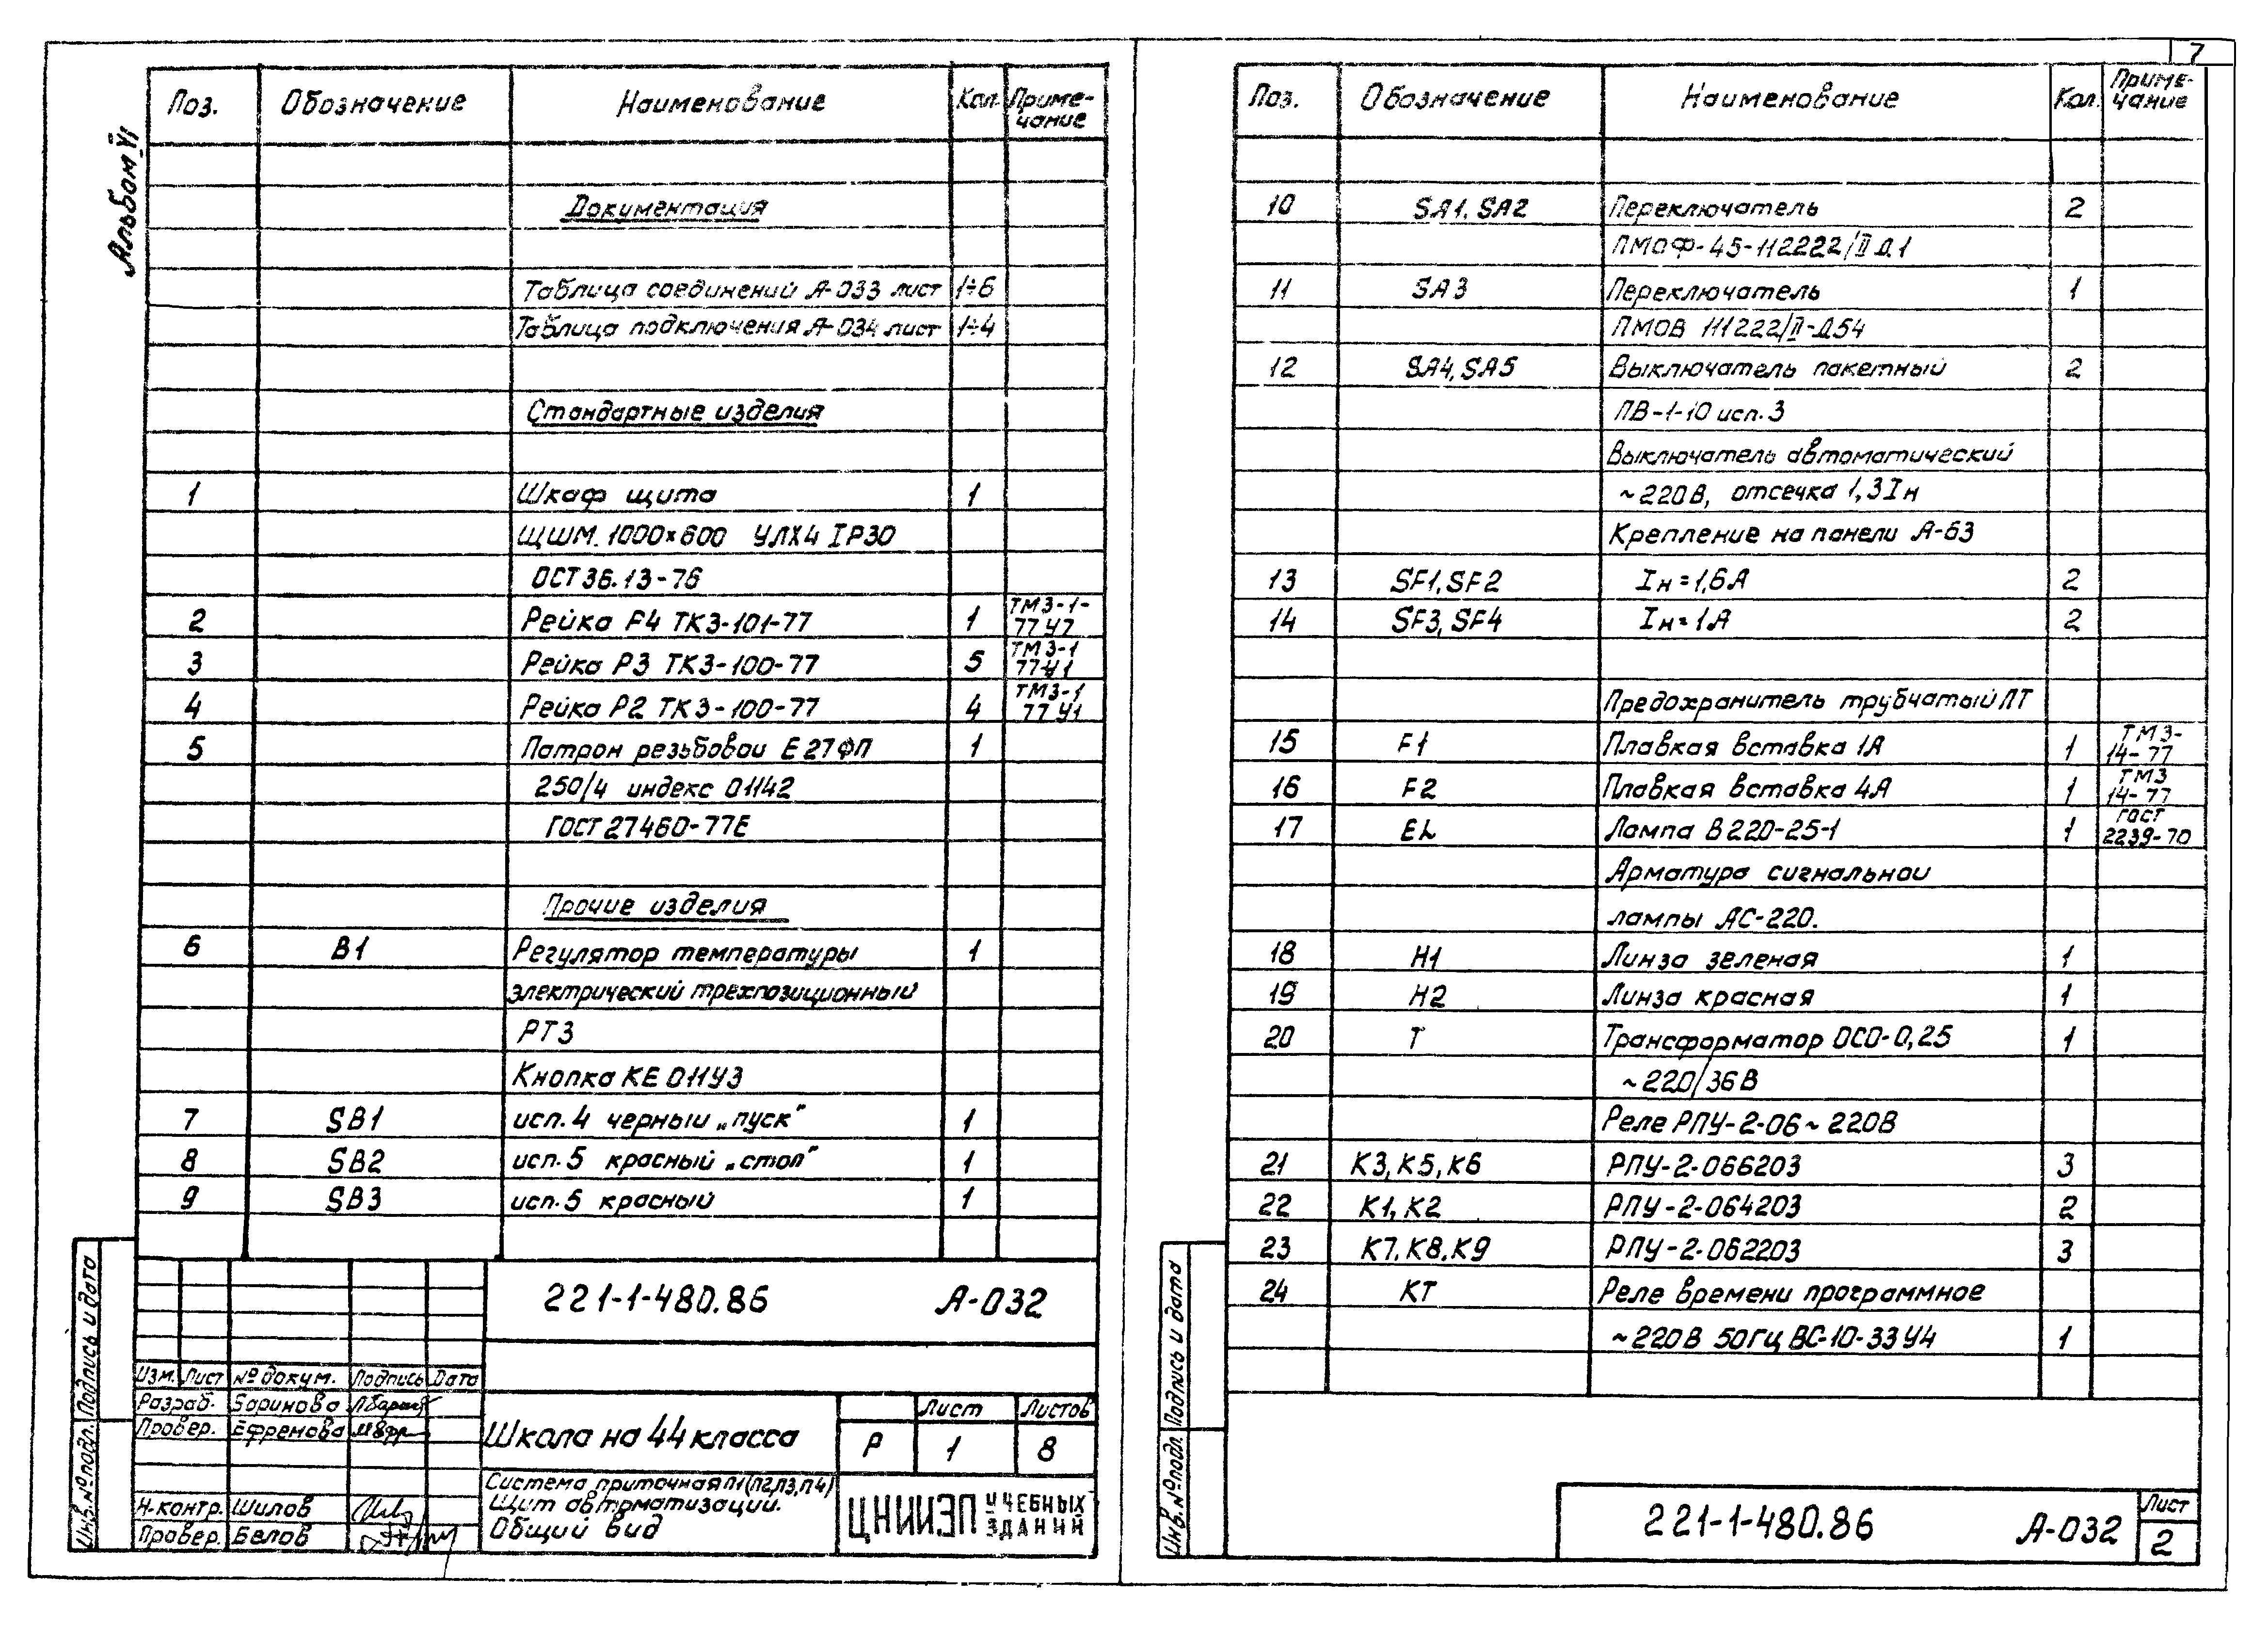 7
Альбом VI
Поз. Обозначение Наименование Кол. Приме-
чание
Документация
Таблица соединений А-033 лист 1÷6
Таблица подключения А-034 лист 1÷4
Стандартные изделия
1 Шкаф щита 1
ЩШМ. 1000×600 УЛХ4 IP30
ОСТ 36.13-76
2 Рейка Р4 ТКЗ-101-77 1 ТМ3-1-
77 У2
3 Рейка Р3 ТКЗ-100-77 5 ТМ3-1
77 У1
4 Рейка Р2 ТКЗ-100-77 4 ТМ3-1
77 У1
5 Патрон резьбовои Е27ФП 1
250/4 индекс 01142
ГОСТ 27460-77Е
Прочие изделия
6 В1 Регулятор температуры 1
электрический трехпозиционный
РТ3
Кнопка КЕ 011У3
7 SB1 исп. 4 черныи „пуск" 1
8 SB2 исп. 5 красный „стоп" 1
9 SB3 исп. 5 красный 1
221-1-480.86 А-032
Изм. Лист № докум. Подпись Дата
Разраб. Баринова
Провер. Ефремова
Н.контр. Шилов
Провер. Белов
Школа на 44 класса
Система приточная П1 (П2, П3, П4)
Щит автоматизации.
Общий вид
Лист Листов
Р 1 8
ЦНИИЭП УЧЕБНЫХ
ЗДАНИЙ
Подпись и дата
Инв. № подл.
Поз. Обозначение Наименование Кол. Приме-
чание
10 SA1, SA2 Переключатель 2
ПМОФ-45-112222/II Д.1
11 SA3 Переключатель 1
ПМОВ 111222/II-Д54
12 SA4, SA5 Выключатель пакетный 2
ПВ-1-10 исп. 3
Выключатель автоматический
~220В, отсечка 1,3Iн
Крепление на панели А-63
13 SF1, SF2 Iн=1,6А 2
14 SF3, SF4 Iн=1А 2
Предохранитель трубчатый ПТ
15 F1 Плавкая вставка 1А 1 ТМ3-
14-77
16 F2 Плавкая вставка 4А 1 ТМ3
14-77
17 EL Лампа В220-25-1 1 ГОСТ
2239-70
Арматура сигнальнои
лампы АС-220.
18 Н1 Линза зеленая 1
19 Н2 Линза красная 1
20 Т Трансформатор ОСО-0,25 1
~220/36В
Реле РПУ-2-06 ~ 220В
21 К3, К5, К6 РПУ-2-066203 3
22 К1, К2 РПУ-2-064203 2
23 К7, К8, К9 РПУ-2-062203 3
24 КТ Реле времени программное
~220В 50Гц ВС-10-33У4 1
Подпись и дата
Инв. № подл.
221-1-480.86 А-032
Лист
2